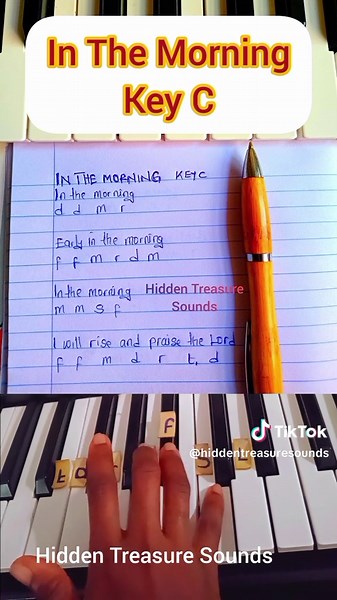 In The Morning
Key C
IN THE MORNING KEYC
In the morning
d d m r
Early in the morning
f f m r d m
In the morning
m m s f
Hidden Treasure
Sounds
I will rise and praise the Lord
f f m d r t, d
f
TikTok
@hiddentreasuresounds
t d
S L
Hidden Treasure Sounds